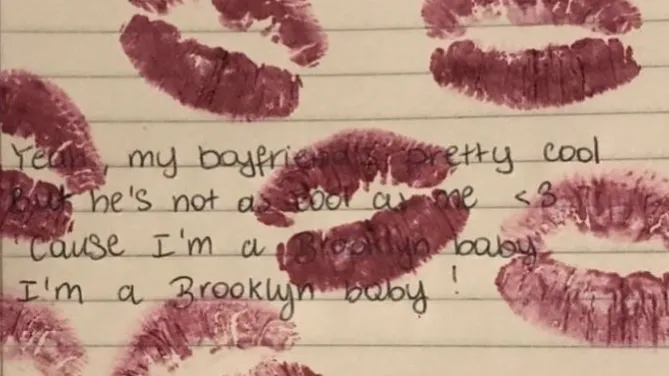 Yeah, my boyfriend's pretty cool
But he's not as cool as me <3
'Cause I'm a Brooklyn baby
I'm a Brooklyn baby !